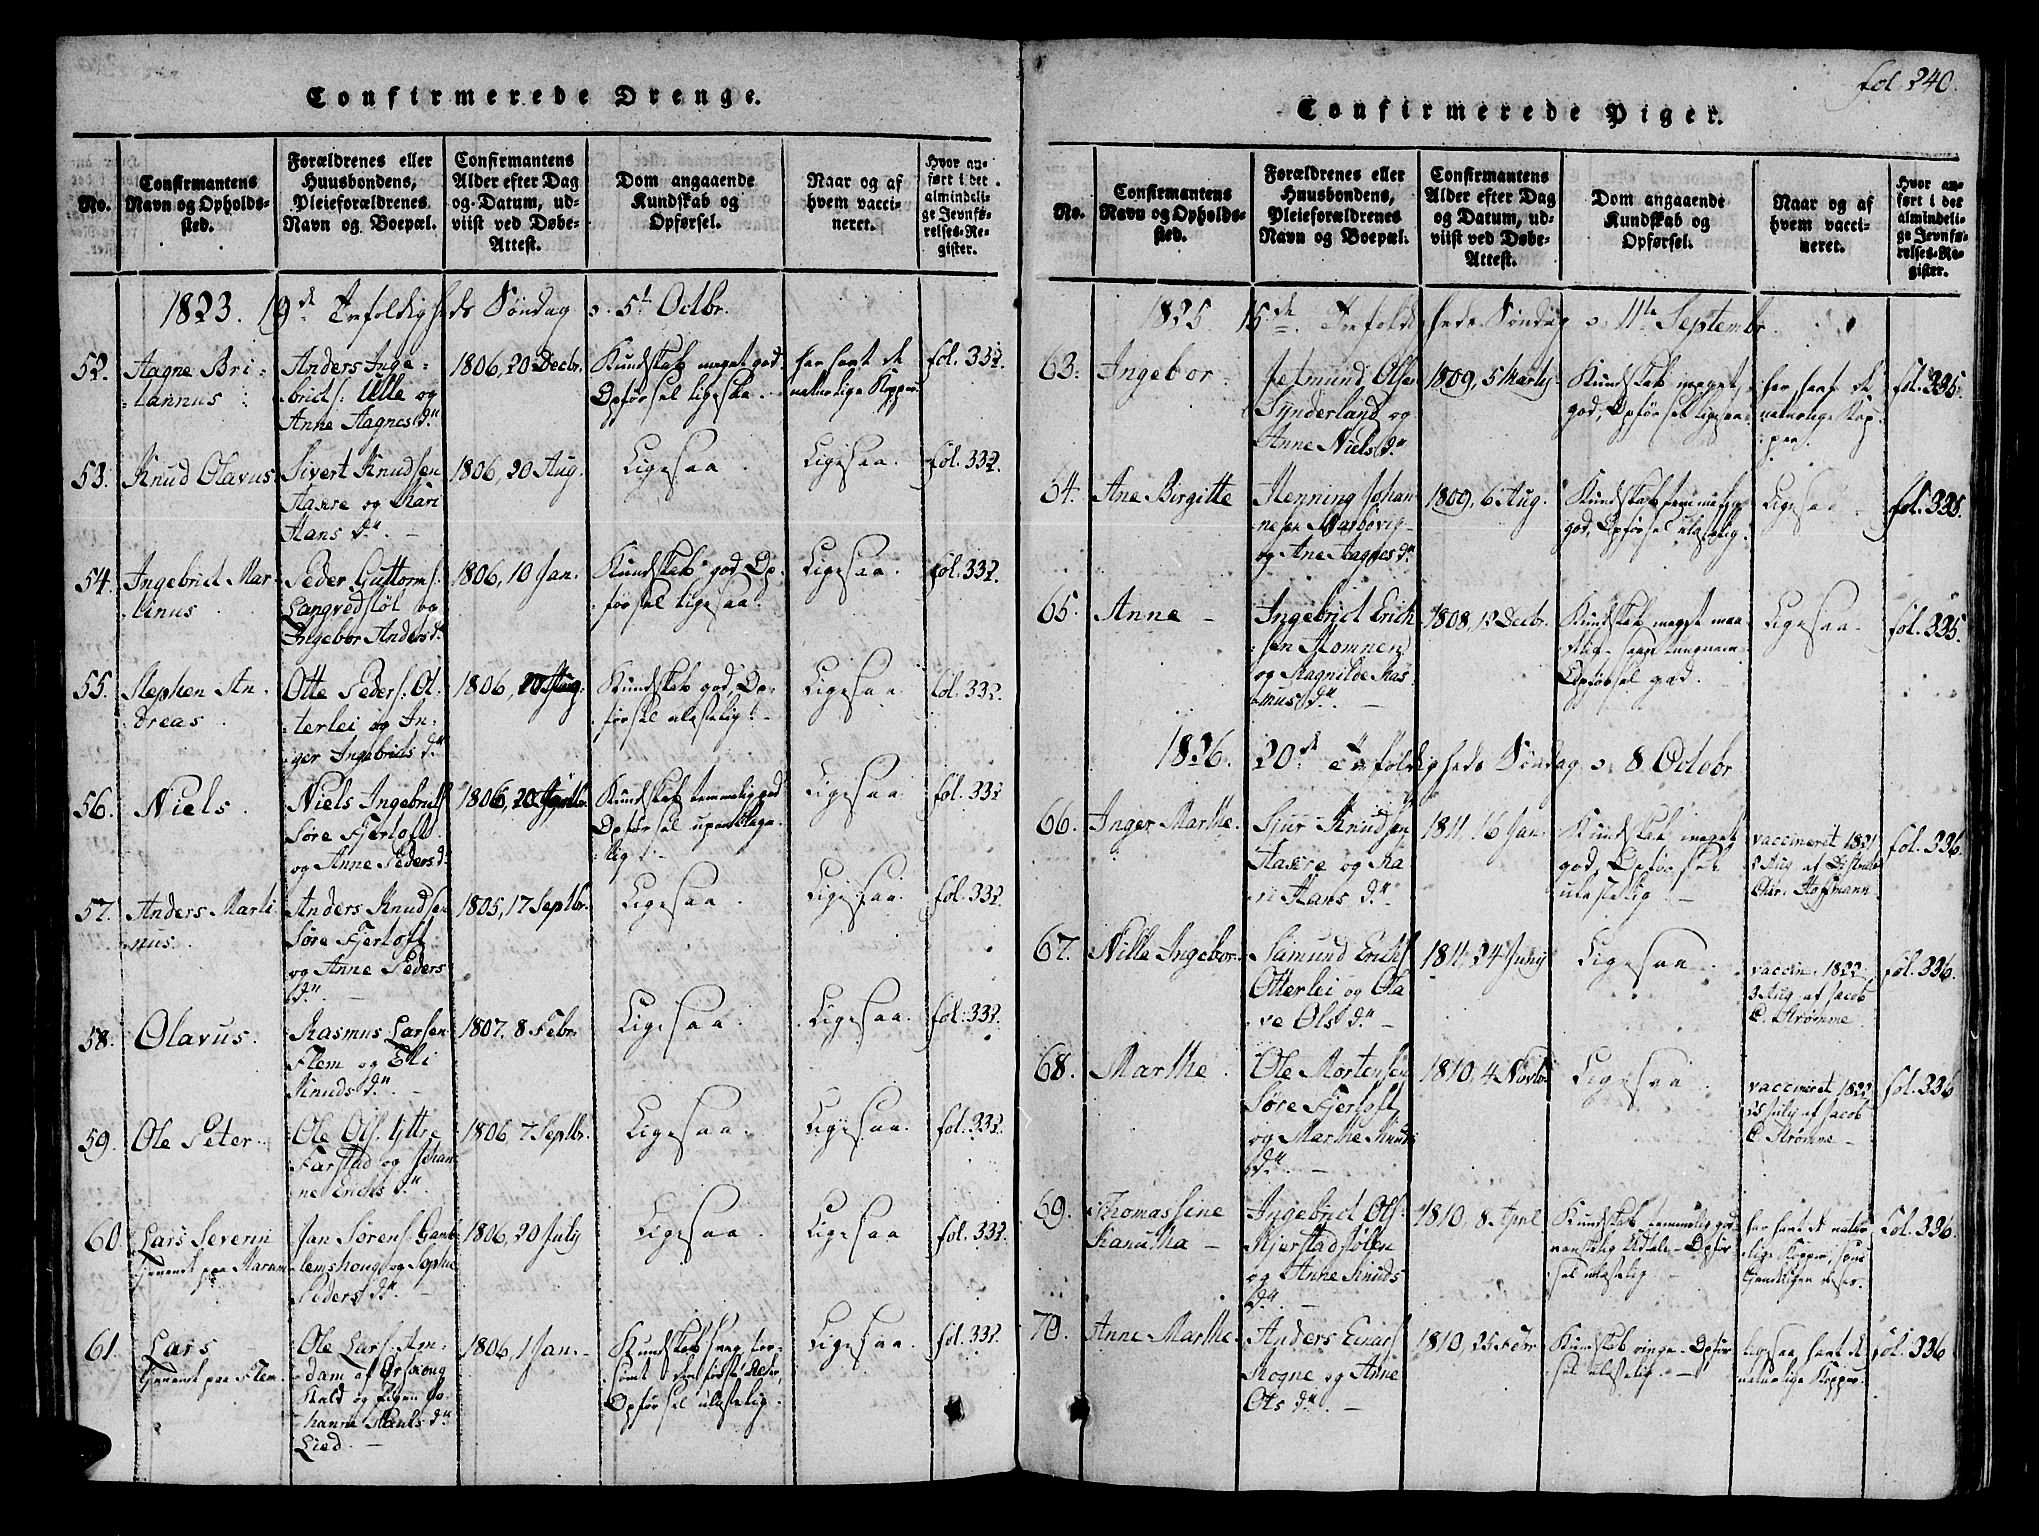 Confirmerede Drenge.
No.
Confirmantens
Navn og Opholds-
sted.
Forældrenes eller
Huusbondens,
Pleieforældrenes
Navn og Boepæl.
Confirmantens
Alder efter Dag
og Datum, ud-
viist ved Døbe-
Attest.
Dom angaaende
Kundskab og
Opførsel.
Naar og af
hvem vacci-
neret.
Hvor an-
ført i det
almindeli-
ge Jevnfø-
relses-Re-
gister.
1823. 19de Trefoldigheds Søndag d. 5t Octbr.
52.
Aagne Bri-
tannus
Anders Inge-
brids: Ulle og
Anne Aagnes d.
1806, 20 Decbr.
Kundskab meget god
Opførsel ligesaa.
har havt de
naturlige Kopper
fol. 332.
53.
Knud Olavus
Sivert Knudsen
Haxre og Kari
Hans d.
1806, 20 Aug.
Ligesaa.
Ligesaa.
fol. 332.
54.
Ingebrid Mar
tinus
Peder Guttorms.
Langvedstøl og
Ingebor Anders d.
1806, 10 Jan.
Kundskab god Op-
førsel ligesaa.
Ligesaa.
fol. 332.
55.
Stephen An-
dreas
Otte Peders. Ot-
terlei og In-
ger Ingebrids d.
1806,
Kundskab god, Op-
førsel ulastelig.
Ligesaa.
fol. 332.
56.
Niels
Niels Ingebrids
Søre Fjertoft
og Anne Peders d.
1806,
Kundskab temmelig god
Opførsel
lig
Ligesaa
fol. 332
57.
Anders Marti
nus.
Anders Knudsen
Søre Fjertoft
og Anne Peders
d.
1805, 17 Septbr.
Ligesaa
Ligesaa.
fol. 332.
58.
Olavus.
Rasmus Larsen
Flem og Eli
Knuds d.
1807. 8 Febr.
Ligesaa.
Ligesaa.
fol. 332.
59.
Ole Peter.
Ole Ols. Yttre
Farstad og Johan-
ne Erichs d.
1806, 7 Septbr.
Ligesaa.
Ligesaa
fol. 332.
60.
Lars Severin
tjenende paa Haram
Jan Sørens. Gam-
lemshoug og Sophie
Peders d.
1806, 20 July
Ligesaa.
Ligesaa
fol. 332.
61.
Lars
tjenende paa Flem.
Ole Lars. Am-
dam af Ørskoug
og Jo-
hanne Hans d.
Lied.
1806, 1 Jan.
Kundskab svag for-
Opførsel ulastelig.
Ligesaa.
fol. 332.
fol. 240.
Confirmerede Piger.
No.
Confirmantens
Navn og Opholds-
sted.
Forældrenes eller
Huusbondens,
Pleieforældrenes
Navn og Boepæl.
Confirmantens
Alder efter Dag
og Datum, ud-
viist ved Døbe-
Attest.
Dom angaaende
Kundskab og
Opførsel.
Naar og af
hvem vacci-
neret.
Hvor an-
ført i det
almindeli-
ge Jevnfø-
relses-Re-
gister.
1825. 15de Trefoldigheds Søndag d. 11te Septembr.
63.
Ingebor
Jetmund Olsen
Synderland og
Anne Niels d.
1809, 5 Martj
Kundskab meget
god, Opførsel ligesaa
har havt de
naturlige Kop-
per
fol. 335.
54.
Ane Birgitte
Henning Johan-
nesen
og Ane Aagnes d.
1809, 6 Aug.
Kundskab temmelig
god, Opførsel ulastelig.
Ligesaa.
fol. 335.
65.
Anne
Ingebrid Erich
sen Stomnen
og Ragnilde Ras-
mus d.
1808, 12 Decbr.
Kundskab meget maa-
Opførsel god.
Ligesaa.
fol. 335.
1826. 20de Trefoldigheds Søndag d. 8 Octobr
66.
Inger Marthe.
Sjur Knudsen
Haxre og Ka
ri Hans d.
1811, 16 Jan.
Kundskab meget
god, Opførsel
ulastelig.
vaccineret 1821
2 Aug af Districts
Chir. Hoffmann
fol. 336.
67.
Nille Ingebor.
Simund Erichs.
Otterlei og Ola
ve Ols d.
1811, 24 Junij
Ligesaa.
vaccin. 1822
3 Aug. af Jacob
C. Strømme.
fol. 336.
68.
Marthe.
Ole Mortensen
Søre Fjertoft
og Marthe Knuds
d.
1810, 4 Novbr.
Ligesaa.
vaccineret 1822
25 July af Jacob
C. Strømme
fol. 336
69.
Thomassine
Kanutha
Ingebrid Ols.
Kjerstadstølen
og Anne Knuds
d.
1810, 8 April
Kundskab temmelig god
vanskelig Udtale Opfør
sel ulastelig.
har havt de natur
lige Kopper,
fol. 336.
70.
Anne Marthe.
Anders Einars.
Rogne og Anne
Ols d.
1810, 25 Febr
Kundskab ringe Opfør
sel ulastelig.
ligesaa havt de
naturlige Kopper.
fol. 336